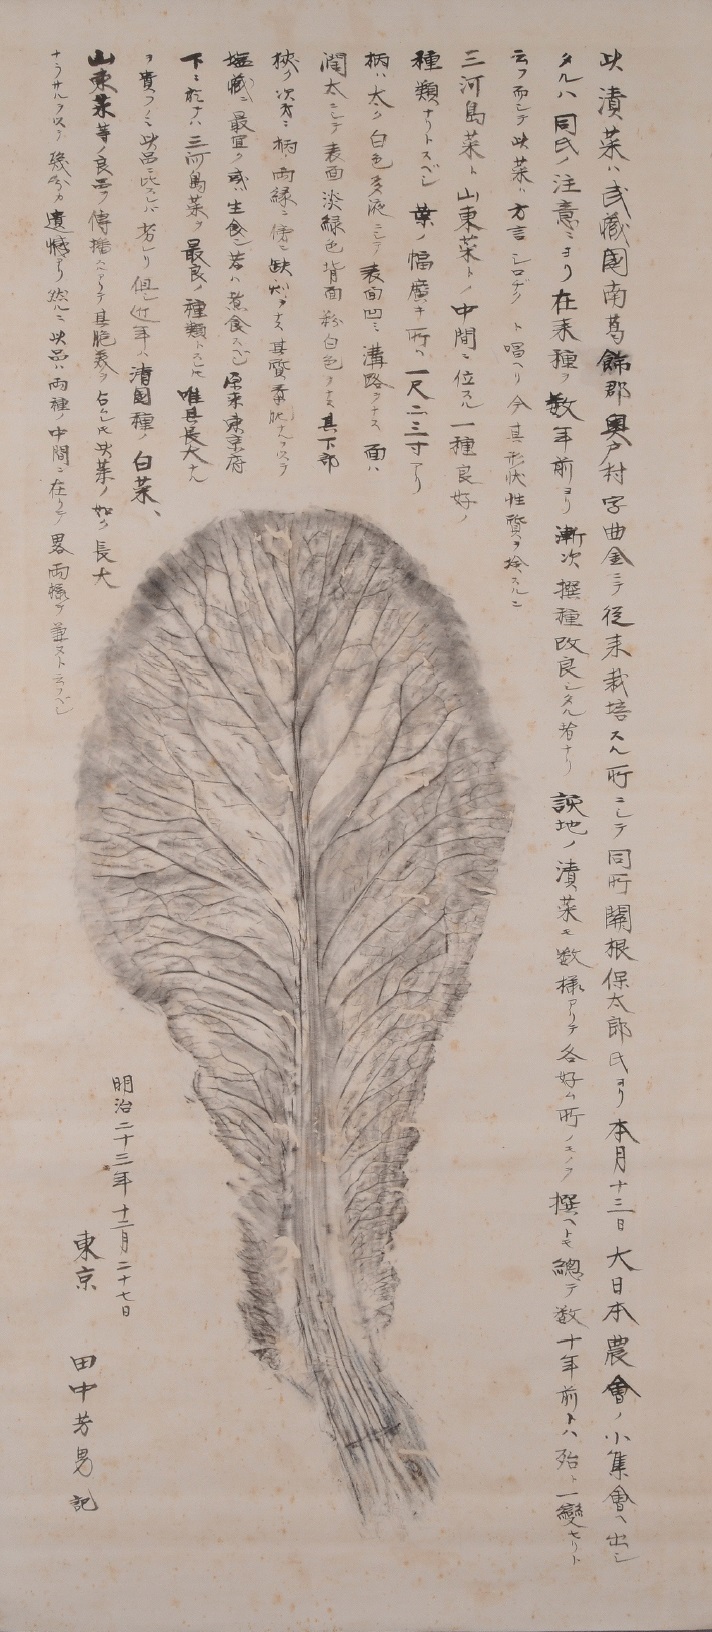 此漬菜ハ武藏國南葛飾郡奥戸村字曲金ニテ從来栽培スル所ニシテ同所關根保太郎氏ヨリ本月十三日大日本農會ノ小集會ヘ出シ
タルハ同氏ノ注意ニヨリ在来種ヲ数年前ヨリ漸次撰種改良シタル者ナリ該地ノ漬菜モ数様アリテ各好ム所ノモノヲ撰ヘトモ總テ数十年前トハ殆ト一變セリト
云フ而シテ此菜ハ方言シロヂクト唱ヘリ今其形状性質ヲ検スルニ
三河島菜ト山東菜トノ中間ニ位スル一種良好ノ
種類ナリトスベシ葉ノ幅廣キ所ハ一尺二三寸アリ
柄ハ太ク白色多液ニシテ表面凹ミ溝路ヲナス面ハ
濶大ニシテ表面淡緑色背面粉白色ヲナス其下部
狹ク次才ニ柄ノ両縁ニ傍ヒ缺刻ヲナス其質柔肥ナルヲ以テ
塩藏ニ最宜ク或ハ生食シ若ハ煮食スベシ原来東京府
下ニ於テハ三河島菜ヲ最良ノ種類トスレトモ唯其長大ナル
ヲ賞スルノミ此品ニ比スレハ劣レリ但シ近年ハ清國種ノ白菜、
山東菜等ノ良品ヲ傳播シアリテ其脆美ヲ占ムレトモ此菜ノ如ク長大
ナラサルヲ以テ幾分カ遺憾アリ然ルニ此品ハ両種ノ中間ニ在リテ畧両様ヲ兼ヌト云フベシ
明治二十三年十二月二十七日
東京 田中芳男記